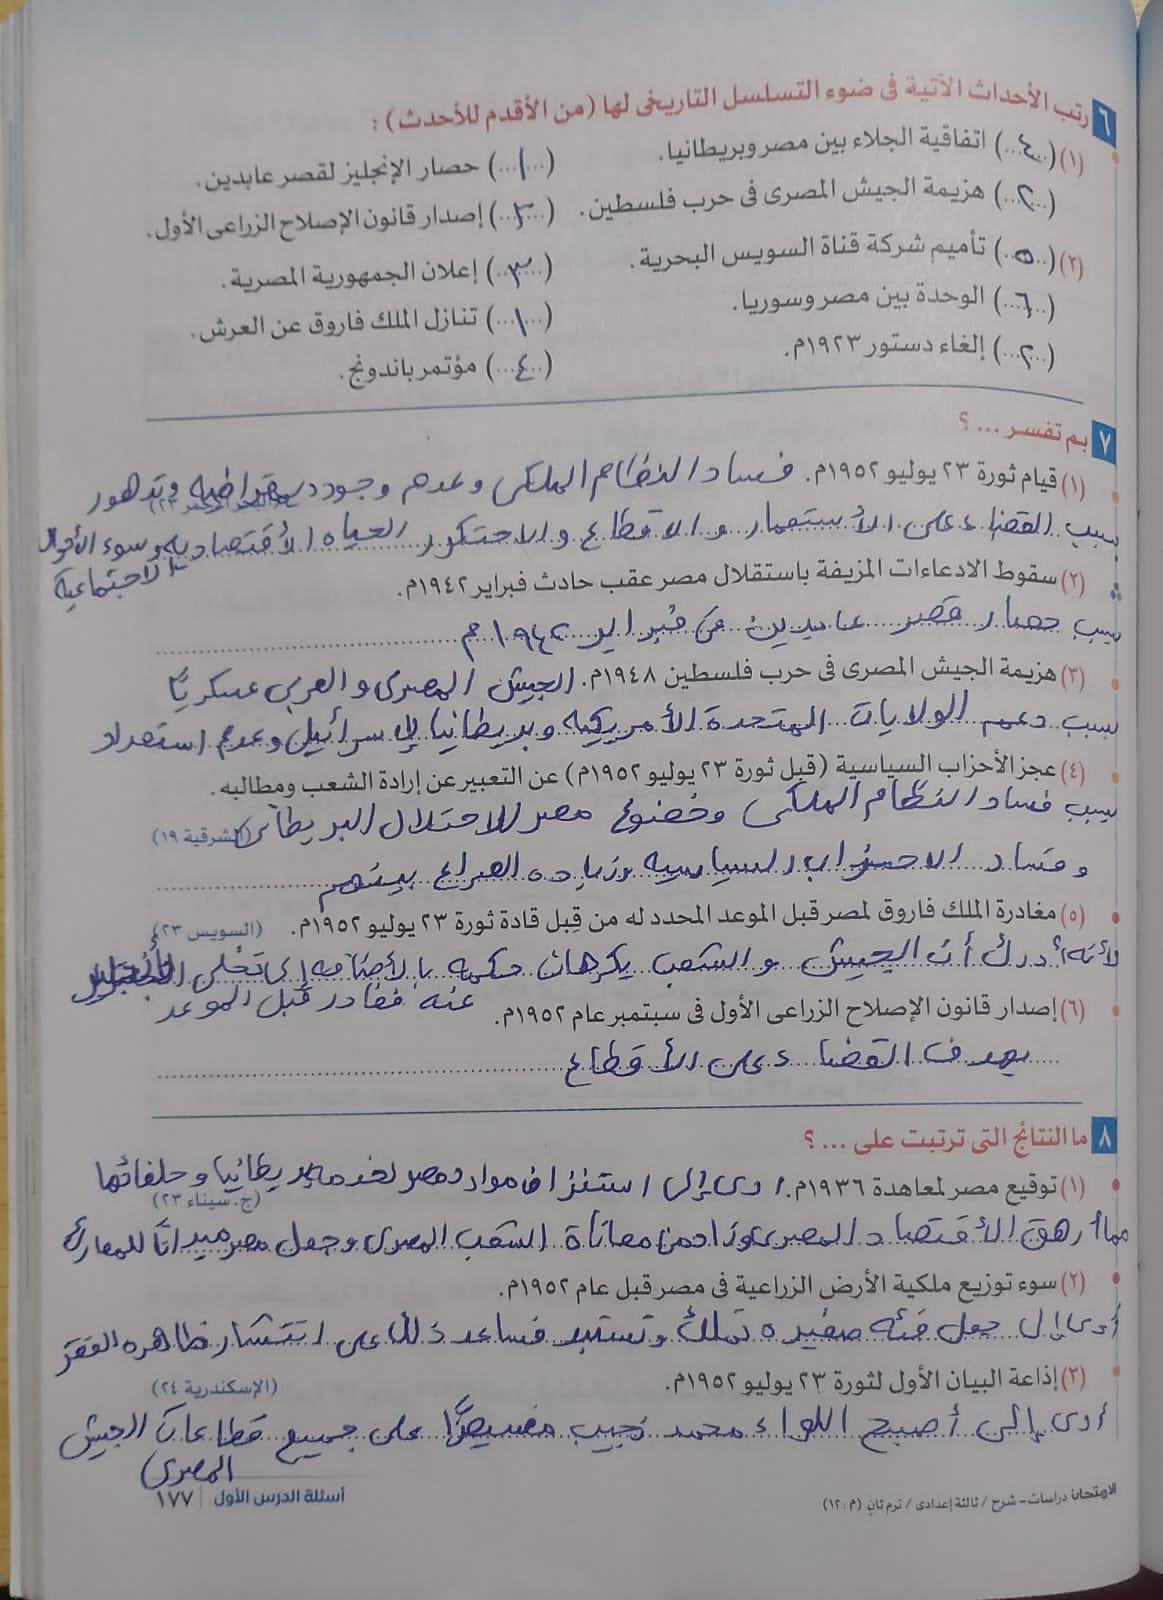 ٦ رتب الأحداث الآتية فى ضوء التسلسل التاريخى لها (من الأقدم للأحدث) :
(١) (..٤..) اتفاقية الجلاء بين مصر وبريطانيا. (..١..) حصار الإنجليز لقصر عابدين.
(..٢..) هزيمة الجيش المصرى فى حرب فلسطين. (..٣..) إصدار قانون الإصلاح الزراعى الأول.
(٢) (..٥..) تأميم شركة قناة السويس البحرية. (..٣..) إعلان الجمهورية المصرية.
(..٦..) الوحدة بين مصر وسوريا. (..١..) تنازل الملك فاروق عن العرش.
(..٢..) إلغاء دستور ١٩٢٣م. (..٤..) مؤتمر باندونج.
٧ بم تفسر ... ؟
(١) قيام ثورة ٢٣ يوليو ١٩٥٢م. فساد النظام الملكى وعدم وجود ديمقراطيه وتدهور
بسبب القضاء على الأستعمار والاقطاع والاحتكار الحياه الأقتصاديه وسوء الأحوال
الاجتماعية
(٢) سقوط الادعاءات المزيفة باستقلال مصر عقب حادث فبراير ١٩٤٢م.
بسبب حصار قصر عابدين فى فبراير ١٩٤٢م
(٣) هزيمة الجيش المصرى فى حرب فلسطين ١٩٤٨م. الجيش المصرى والعربى عسكريًا
بسبب دعم الولايات المتحدة الأمريكيه وبريطانيا لإسرائيل وعدم استعداد
(٤) عجز الأحزاب السياسية (قبل ثورة ٢٣ يوليو ١٩٥٢م) عن التعبير عن إرادة الشعب ومطالبه.
بسبب فساد النظام الملكى وخضوع مصر للاحتلال البريطانى (الشرقية ١٩)
وفساد الاحزاب السياسيه وزياده الصراع بينهم
(٥) مغادرة الملك فاروق لمصر قبل الموعد المحدد له من قِبل قادة ثورة ٢٣ يوليو ١٩٥٢م. (السويس ٢٣)
لأنه أدرك أن الجيش والشعب يكرهان حكمه بالأضافه إلى تخلى
عنه فغادر قبل الموعد
(٦) إصدار قانون الإصلاح الزراعى الأول فى سبتمبر عام ١٩٥٢م.
بهدف القضاء على الأقطاع
٨ ما النتائج التى ترتبت على ... ؟
(١) توقيع مصر لمعاهدة ١٩٣٦م. ادى إلى استنزاف موارد مصر لخدمه بريطانيا وحلفائها
(ج. سيناء ٢٣)
مما أرهق الأقتصاد المصرى وزاد من معاناة الشعب المصرى وجعل مصر ميدانًا للمعارك
(٢) سوء توزيع ملكية الأرض الزراعية فى مصر قبل عام ١٩٥٢م.
أدى إلى جعل فئه صغيره تملك وتستبد فساعد ذلك على انتشار ظاهره الفقر
(٣) إذاعة البيان الأول لثورة ٢٣ يوليو ١٩٥٢م. (الإسكندرية ٢٤)
أدى إلى أصبح اللواء محمد نجيب مسيطرًا على جميع قطاعات الجيش
المصرى
الامتحان دراسات - شرح / ثالثة إعدادى / ترم ثان (م : ١٢) أسئلة الدرس الأول ١٧٧